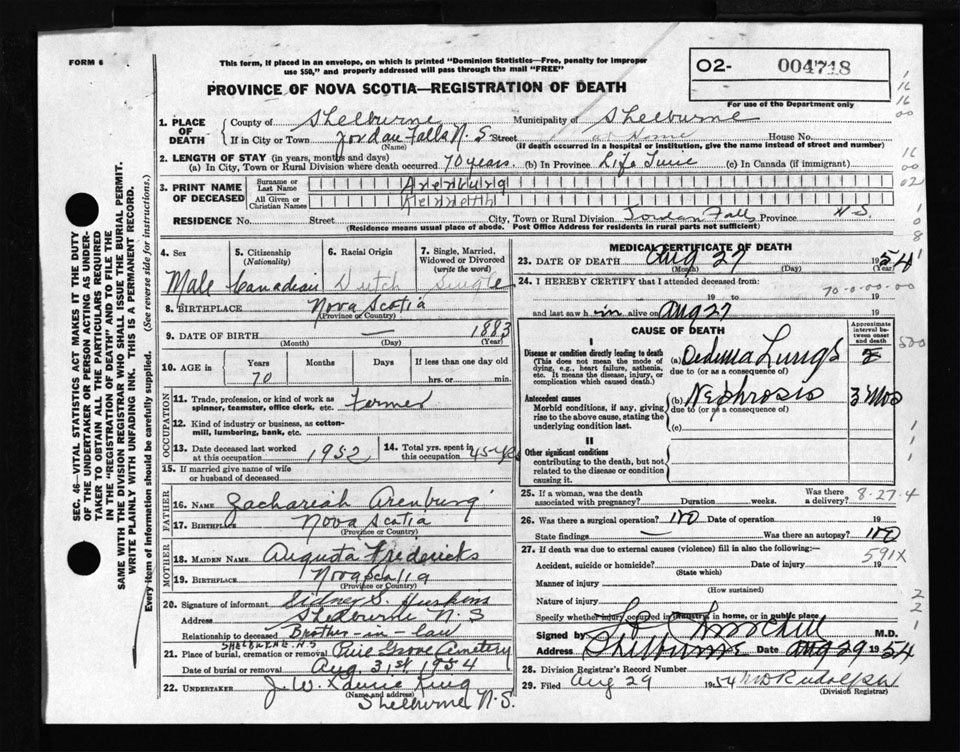 FORM 6
This form, if placed in an envelope, on which is printed "Dominion Statistics—Free, penalty for improper
use $50," and properly addressed will pass through the mail "FREE"
O2- 004718
For use of the Department only
PROVINCE OF NOVA SCOTIA—REGISTRATION OF DEATH
1. PLACE OF DEATH County of Shelburne Municipality of Shelburne
If in City or Town Jordan Falls N.S. Street at Home House No.
(Name) (If death occurred in a hospital or institution, give the name instead of street and number)
2. LENGTH OF STAY (in years, months and days)
(a) In City, Town or Rural Division where death occurred 70 years. (b) In Province Life Time (c) In Canada (if immigrant)
3. PRINT NAME OF DECEASED Surname or Last Name Arenburg
All Given or Christian Names Kenneth
RESIDENCE No. Street City, Town or Rural Division Jordan Falls Province N.S.
(Residence means usual place of abode. Post Office Address for residents in rural parts not sufficient)
4. Sex 5. Citizenship (Nationality) 6. Racial Origin 7. Single, Married, Widowed or Divorced (write the word)
Male Canadian Dutch Single
8. BIRTHPLACE Nova Scotia
(Province or Country)
9. DATE OF BIRTH 1883
(Month) (Day) (Year)
10. AGE in Years Months Days If less than one day old
70 hrs. or min.
OCCUPATION
11. Trade, profession, or kind of work as spinner, teamster, office clerk, etc. Farmer
12. Kind of industry or business, as cotton-mill, lumbering, bank, etc.
13. Date deceased last worked at this occupation 1952 14. Total yrs. spent in this occupation 45 yrs
15. If married give name of wife or husband of deceased
FATHER
16. NAME Zachariah Arenburg
17. BIRTHPLACE Nova Scotia
(Province or Country)
MOTHER
18. MAIDEN NAME Augusta Fredericks
19. BIRTHPLACE Nova Scotia
(Province or Country)
20. Signature of informant Sidney S. Huskins
Address Shelburne N.S
Relationship to deceased Brother-in-law
SHELBURNE N.S
21. Place of burial, cremation or removal Pine Grove Cemetery
Date of burial or removal Aug 31st 1954
22. UNDERTAKER J. W. King
(Name and address)
Shelburne N.S.
MEDICAL CERTIFICATE OF DEATH
23. DATE OF DEATH Aug 27 1954
(Month) (Day) (Year)
24. I HEREBY CERTIFY that I attended deceased from:
70-0-00-00
19 to 19
and last saw him alive on Aug 27 19
CAUSE OF DEATH
Approximate interval between onset and death
I
Disease or condition directly leading to death
(This does not mean the mode of dying, e.g., heart failure, asthenia, etc. It means the disease, injury, or complication which caused death.)
(a) Oedema Lungs
due to (or as a consequence of)
Antecedent causes
Morbid conditions, if any, giving rise to the above cause, stating the underlying condition last.
(b) Nephrosis 3 Mos
due to (or as a consequence of)
(c)
II
Other significant conditions
contributing to the death, but not related to the disease or condition causing it.
25. If a woman, was the death associated with pregnancy? Duration weeks. Was there a delivery? 8-27-4
26. Was there a surgical operation? No Date of operation 19
State findings — Was there an autopsy? No
27. If death was due to external causes (violence) fill in also the following:—
591X
Accident, suicide or homicide? Date of injury 19
(State which)
Manner of injury
(How sustained)
Nature of injury
Specify whether injury occurred in industry, in home, or in public place
Signed by M.D.
Address Shelburne Date Aug 29 1954
28. Division Registrar's Record Number
29. Filed Aug 29 1954
(Division Registrar)
SEC. 46—VITAL STATISTICS ACT MAKES IT THE DUTY
OF THE UNDERTAKER OR PERSON ACTING AS UNDER-
TAKER TO OBTAIN ALL THE PARTICULARS REQUIRED
IN THE "REGISTRATION OF DEATH" AND TO FILE THE
SAME WITH THE DIVISION REGISTRAR WHO SHALL ISSUE THE BURIAL PERMIT.
WRITE PLAINLY WITH UNFADING INK. THIS IS A PERMANENT RECORD.
Every item of information should be carefully supplied. (See reverse side for instructions.)